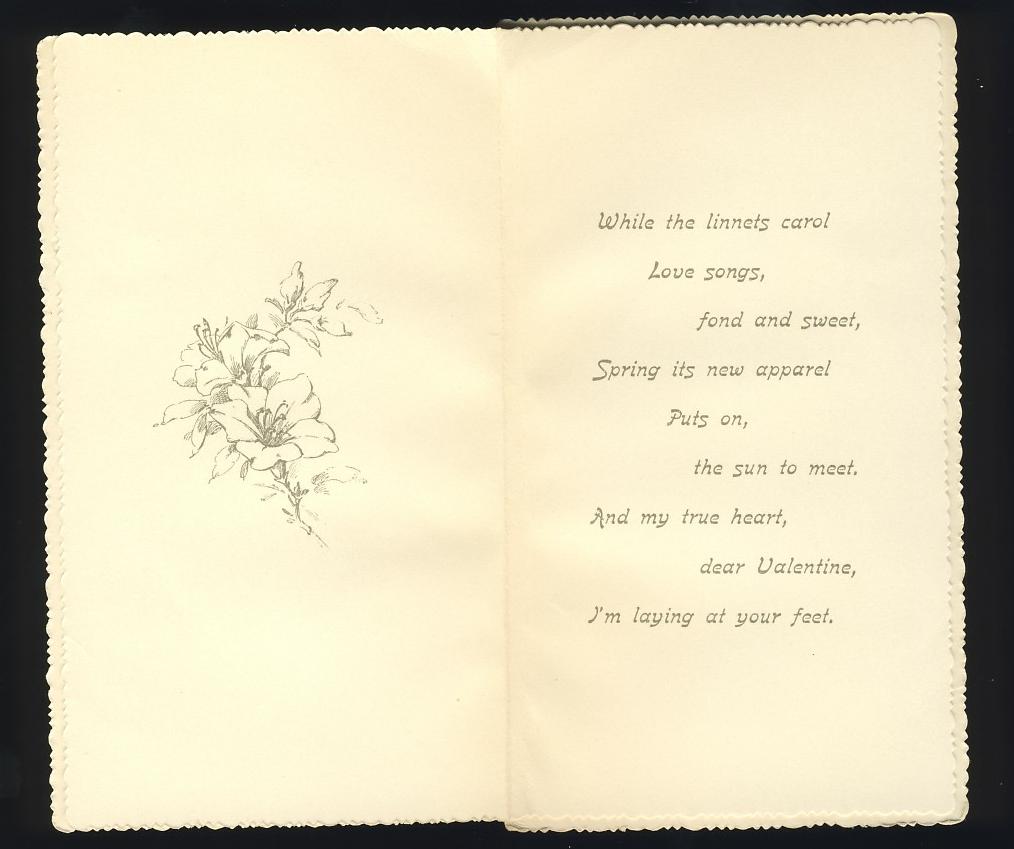 While the linnets carol
Love songs,
fond and sweet,
Spring its new apparel
Puts on,
the sun to meet.
And my true heart,
dear Valentine,
I'm laying at your feet.